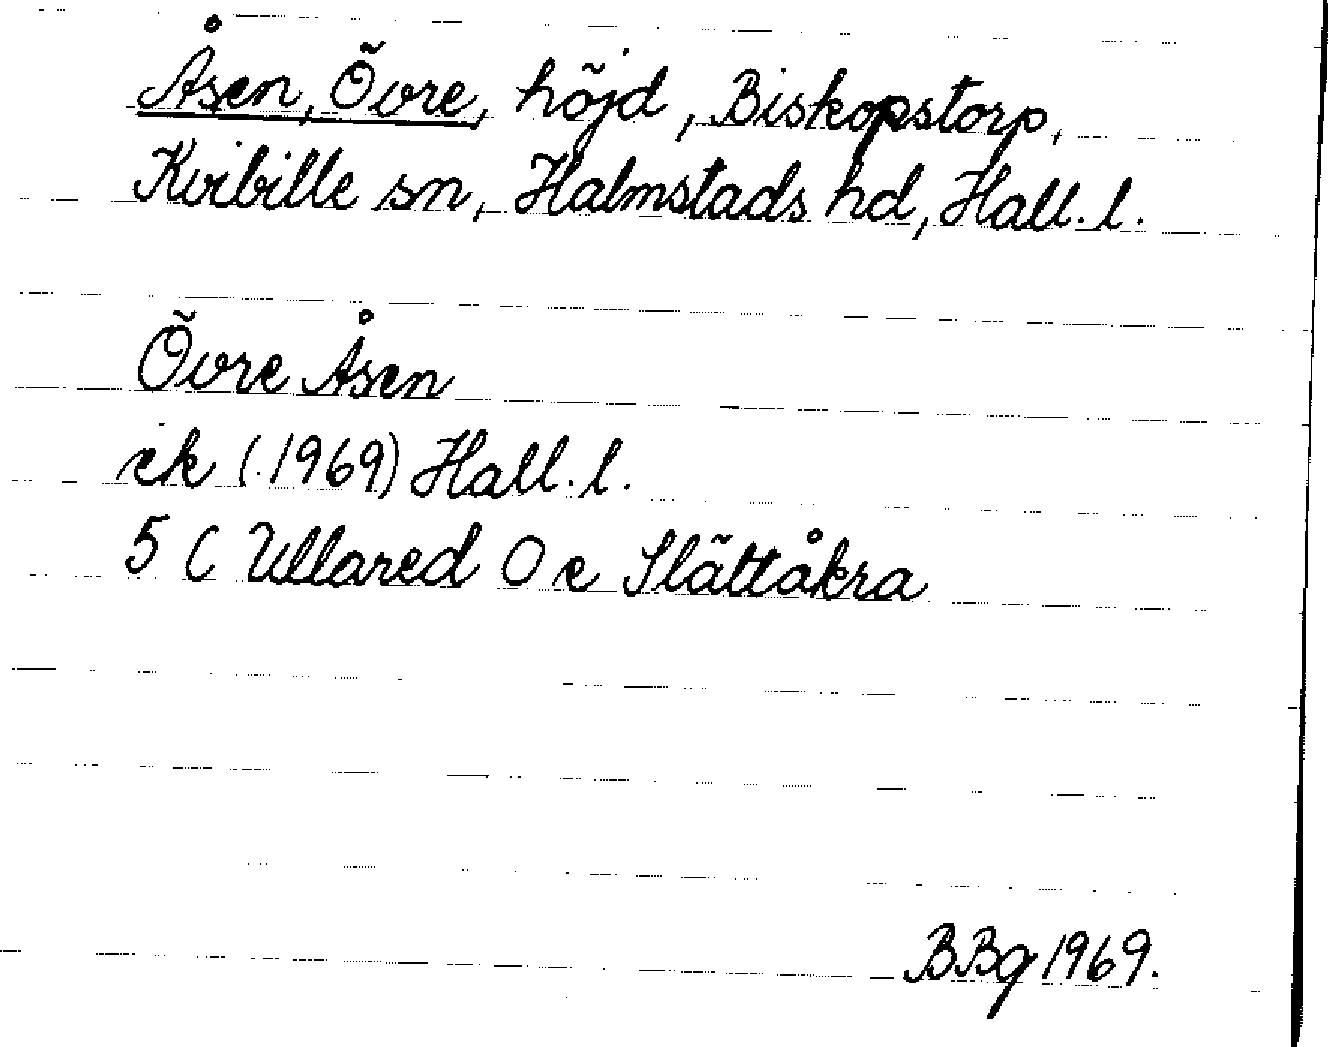 Åsen, Övre, höjd, Biskopstorp,
Kvibille sn, Halmstads hd, Hall. l.
Övre Åsen
ek (1969) Hall. l.
5 C Ullared 0 e Slättåkra
BBg 1969.